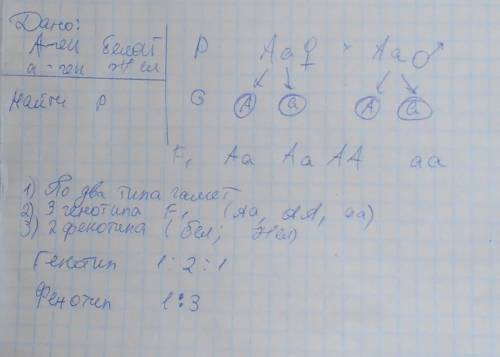 Дано:
А-ген белой
а-ген жел
Найти P
P Aa♀ × Aa♂
G A a A a
F₁ Aa Aa AA aa
1) По два типа гамет
2) 3 генотипа F₁ (Aa, AA, aa)
3) 2 фенотипа (бел; жел)
Генотип 1:2:1
Фенотип 1:3